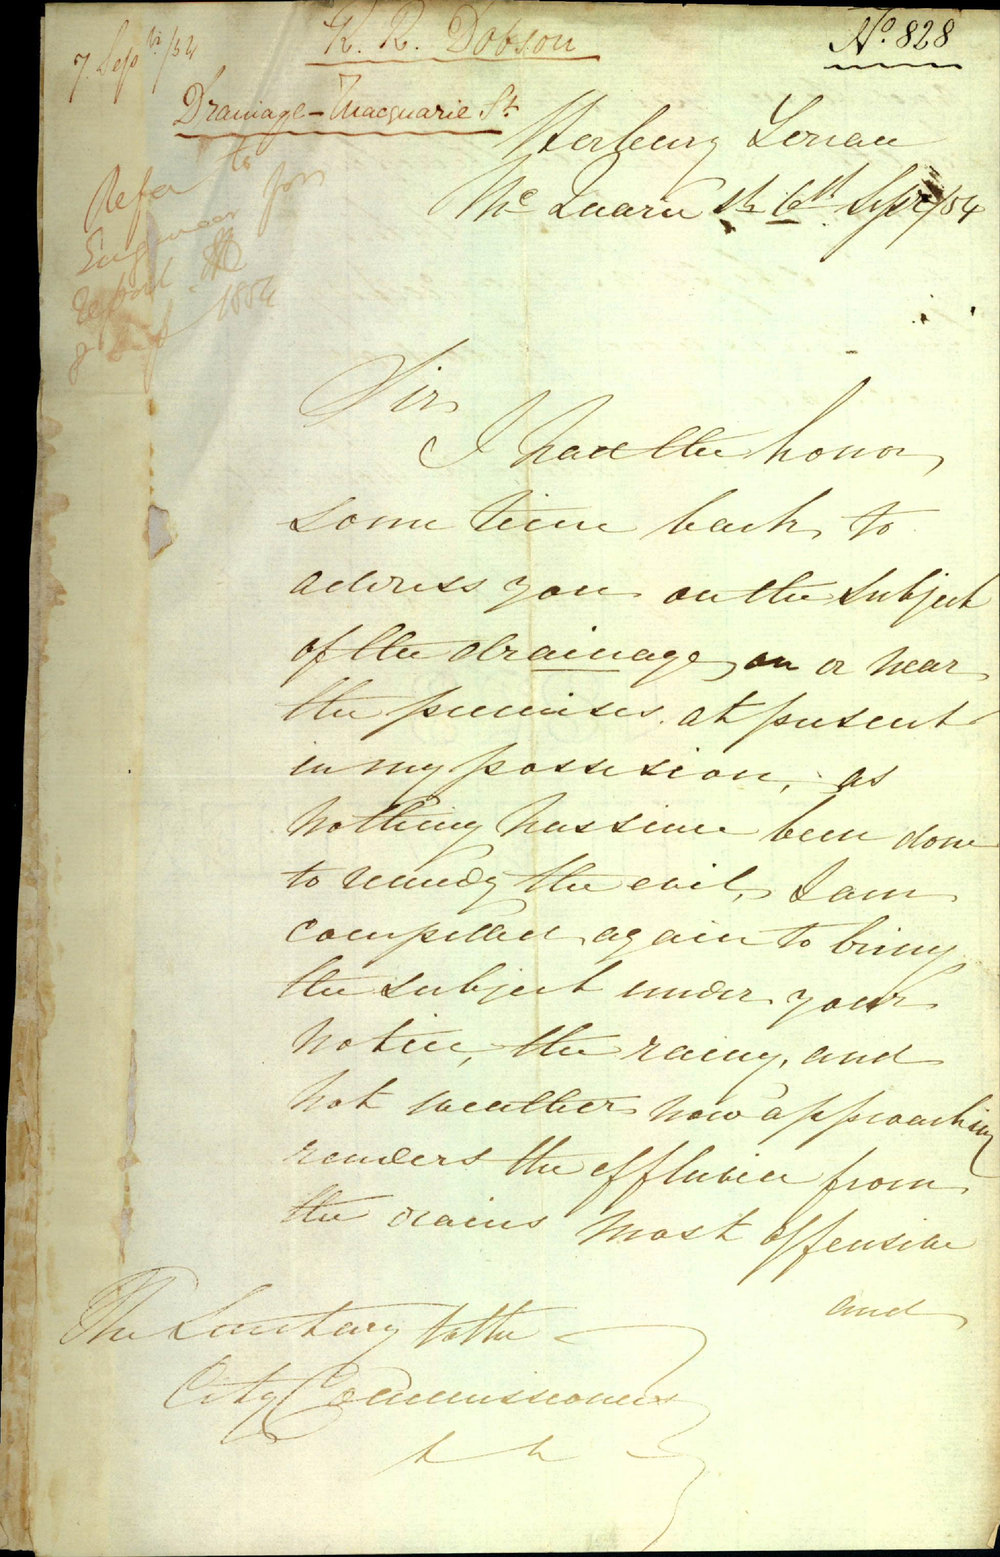 7 Septbr/54
R. R. Dobson
No. 828
Drainage - Macquarie St.
Refer to
Engineer for
report
8 Sept 1854
Horbury Terrace
McQuarie St 6th Sepr/54
Sir
I had the honor
some time back to
address you on the subject
of the drainage on or near
the premises at present
in my possession, as
nothing has since been done
to remedy the evil, I am
compelled again to bring
the subject under your
notice, the rainy, and
hot weather now approaching
renders the effluvia from
the drains most offensive
and
The Secretary to the
City Commissioners